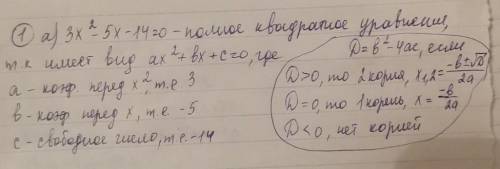 ① а) 3x² - 5x - 14 = 0 - полное квадратное уравнение,
т.к имеет вид ax² + bx + c = 0, где
a - коэф. перед x², т.е 3
b - коэф перед x, т.е. -5
c - свободное число, т.е. -14
D = b² - 4ac, если
D > 0, то 2 корня, x₁,₂ = -b ± √D / 2a
D = 0, то 1 корень, x = -b / 2a
D < 0, нет корней